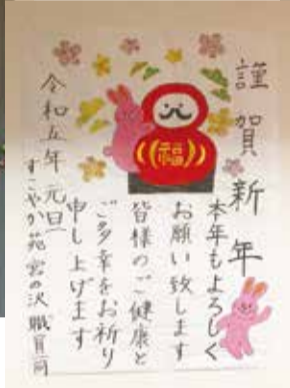 謹賀新年
本年もよろしく
お願い致します
皆様のご健康と
ご多幸をお祈り
申し上げます
令和五年元旦
すこやか苑宮の沢職員一同
福